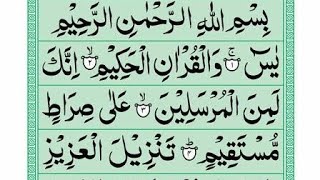 بِسْمِ اللهِ الرَّحْمٰنِ الرَّحِيْمِ
يٰسٓ ۚ﴿۱﴾ وَالْقُرْاٰنِ الْحَكِيْمِ ۙ﴿۲﴾ اِنَّكَ
لَمِنَ الْمُرْسَلِيْنَ ۙ﴿۳﴾ عَلٰى صِرَاطٍ
مُّسْتَقِيْمٍ ؕ﴿۴﴾ تَنْزِيْلَ الْعَزِيْزِ